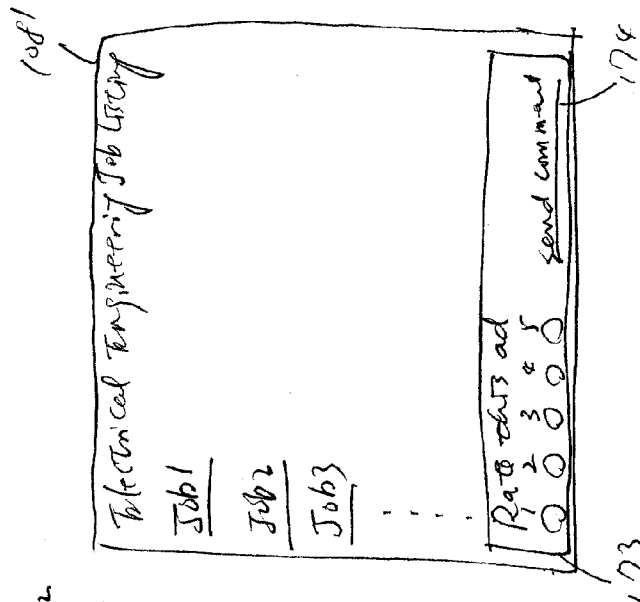 1081
Electrical Engineering Job Listing
Job1
Job2
Job3
Rate this ad
1 2 3 4 5
send comment
173
174
2